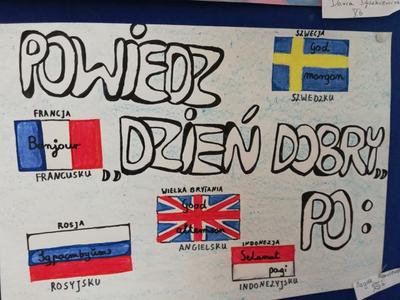 SZWECJA
God
morgon
SZWEDZKU
POWIEDZ
FRANCJA
Bonjour
FRANCUSKU
„DZIEŃ DOBRY„
PO:
WIELKA BRYTANIA
Good
afternoon
ANGIELSKU
ROSJA
Здраствуйте
ROSYJSKU
INDONEZJA
Selamat
pagi
INDONEZYJSKU